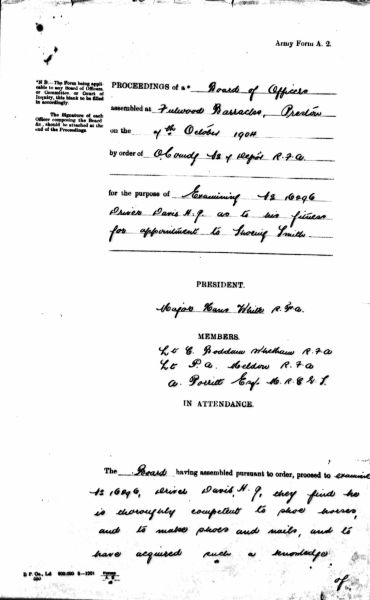 Army Form A. 2.
*N B - The Form being applicable to any Board of Officers, or Committee or Court of Inquiry, this blank to be filled in accordingly.
The Signature of each Officer composing the Board &c., should be attached at the end of the Proceedings.
PROCEEDINGS of a* Board of Officers
assembled at Fulwood Barracks, Preston
on the 7th October 1904
by order of O Comdg No 4 Depot R.F.A.
for the purpose of Examining No
Driver Davis H. J. as to his fitness
for appointment to Shoeing Smith
PRESIDENT.
Major White R.F.A.
MEMBERS.
Lt C. Boddam Whetham R.F.A
Lt P. A. Meldon R.F.A
A. Porritt Esq. M.R.C.V.S.
IN ATTENDANCE.
The Board having assembled pursuant to order, proceed to examine
No Driver Davis, H. J, they find he
is thoroughly competent to shoe horses,
and to make shoes and nails, and to
have acquired such a knowledge
of.